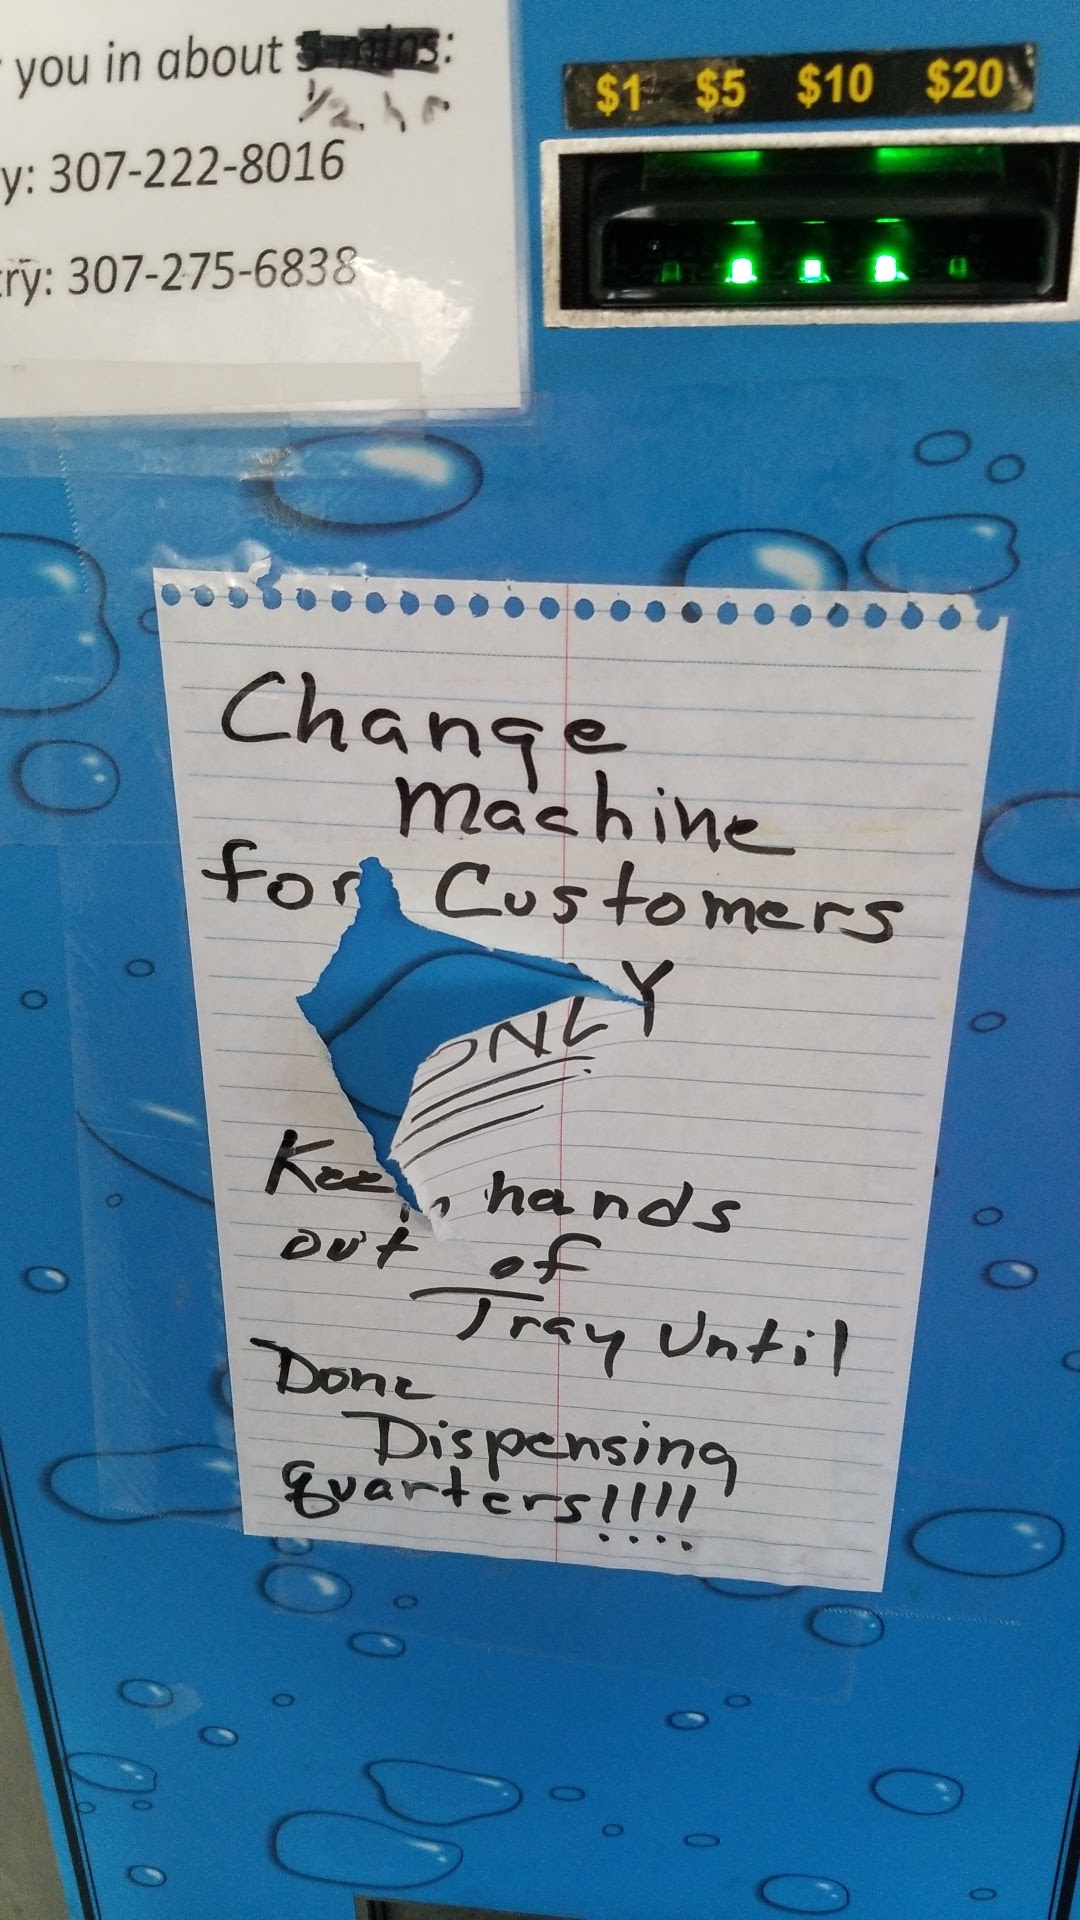 you in about 5 mins:
1/2 hr
y: 307-222-8016
try: 307-275-6838
$1 $5 $10 $20
Change
Machine
for Customers
ONLY
Keep hands
out of
Tray Until
Done
Dispensing
quarters!!!!